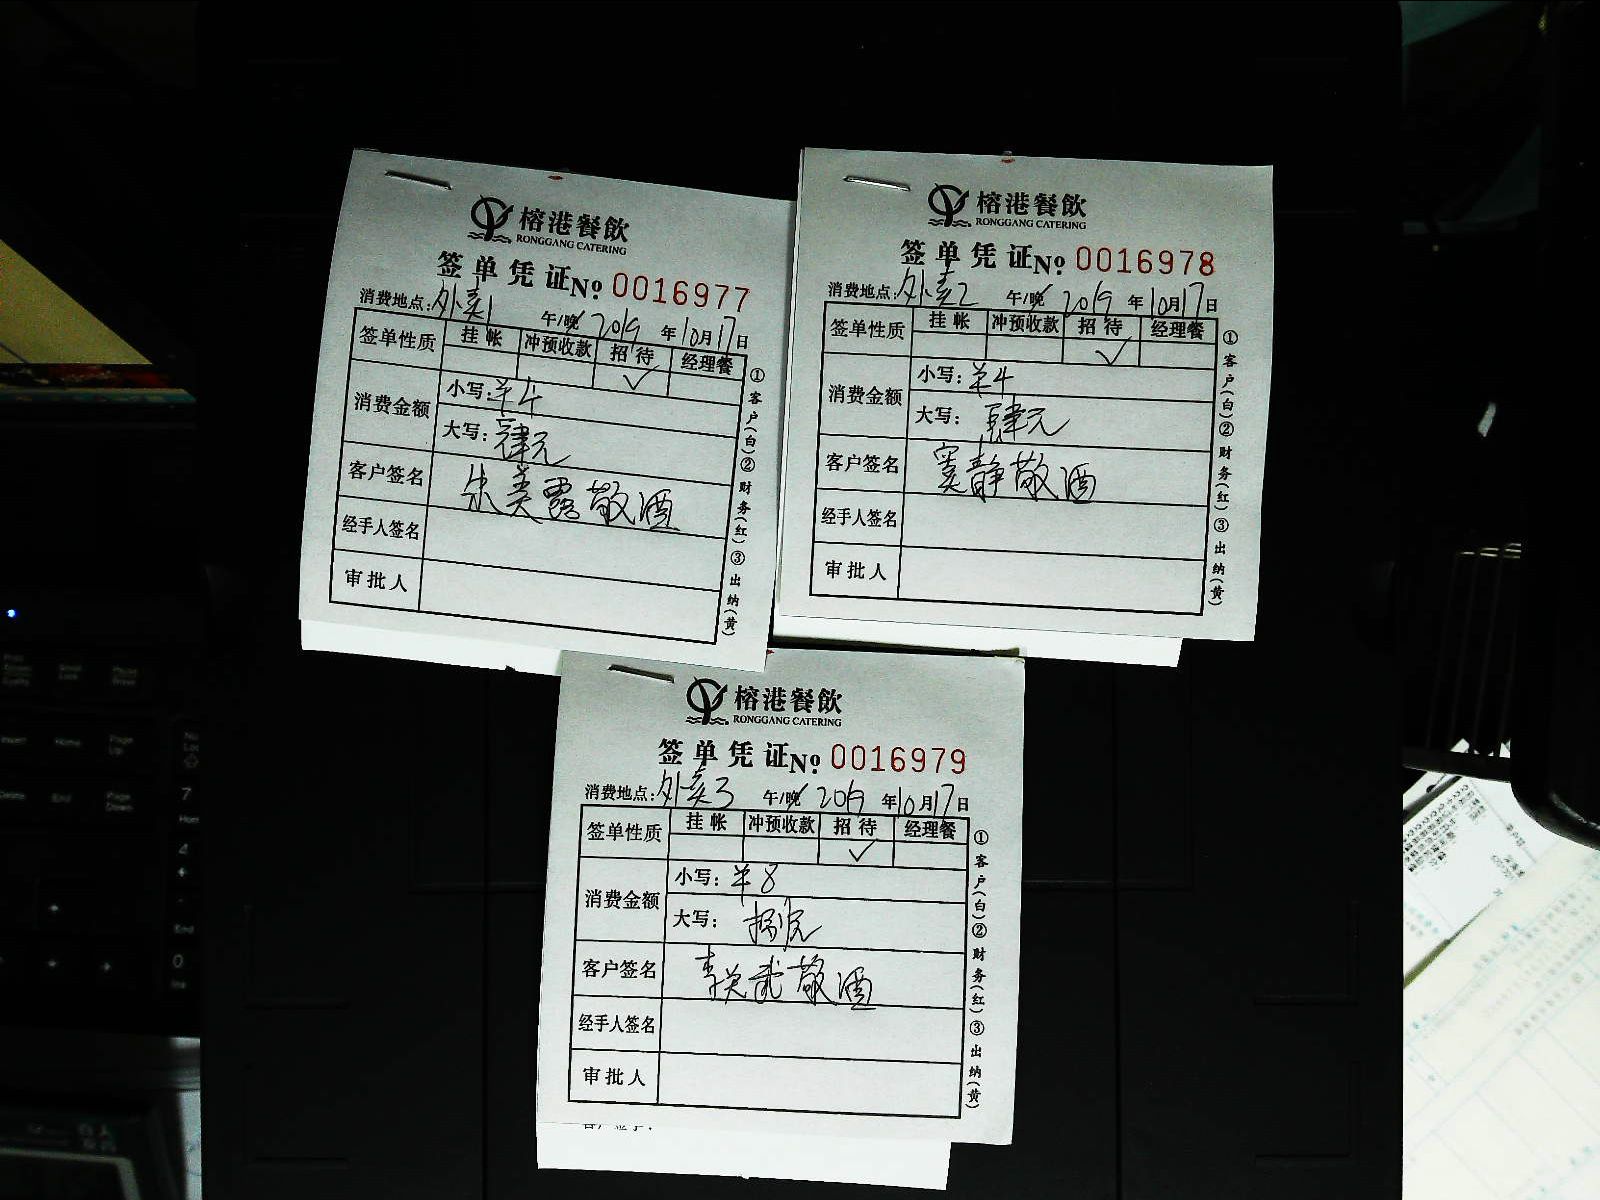 榕港餐飲
RONGGANG CATERING
签单凭证 № 0016977
消费地点：外卖1 午/晚 2019年10月17日
签单性质 挂帐 冲预收款 招待 经理餐
✓
消费金额 小写：¥4
大写：肆元
客户签名 朱美露敬酒
经手人签名
审批人
①客户(白)②财务(红)③出纳(黄)
榕港餐飲
RONGGANG CATERING
签单凭证 № 0016978
消费地点：外卖2 午/晚 2019年10月17日
签单性质 挂帐 冲预收款 招待 经理餐
✓
消费金额 小写：¥4
大写：肆元
客户签名 窦静敬酒
经手人签名
审批人
①客户(白)②财务(红)③出纳(黄)
榕港餐飲
RONGGANG CATERING
签单凭证 № 0016979
消费地点：外卖3 午/晚 2019年10月17日
签单性质 挂帐 冲预收款 招待 经理餐
✓
消费金额 小写：¥8
大写：捌元
客户签名 敬酒
经手人签名
审批人
①客户(白)②财务(红)③出纳(黄)